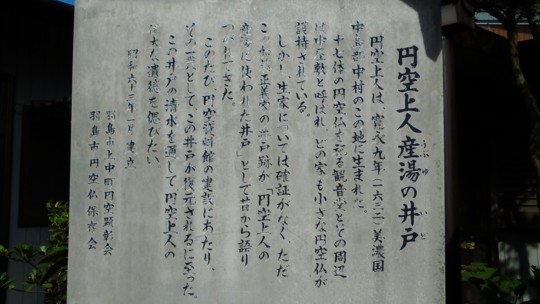 円空上人産湯の井戸
うぶゆ
いど
円空上人は、寛永九年(一六三二)美濃国
中島郡中村のこの地に生まれた。
十七体の円空仏を祀る観音堂とその周辺
は中屋敷と呼ばれ、どの家も小さな円空仏が
護持されている。
しかし、生家については確証がなく、ただ
この
家の井戸跡が「円空上人の
産湯に使われた井戸」として昔から語り
つがれてきた。
このたび、円空資料館の建設にあたり、
その一環としてこの井戸が復元されるに至った。
この井戸の清水を通して円空上人の
偉大な遺徳を偲びたい
昭和六十三年一月建立
羽島市上中町円空顕彰会
羽島市円空仏保存会